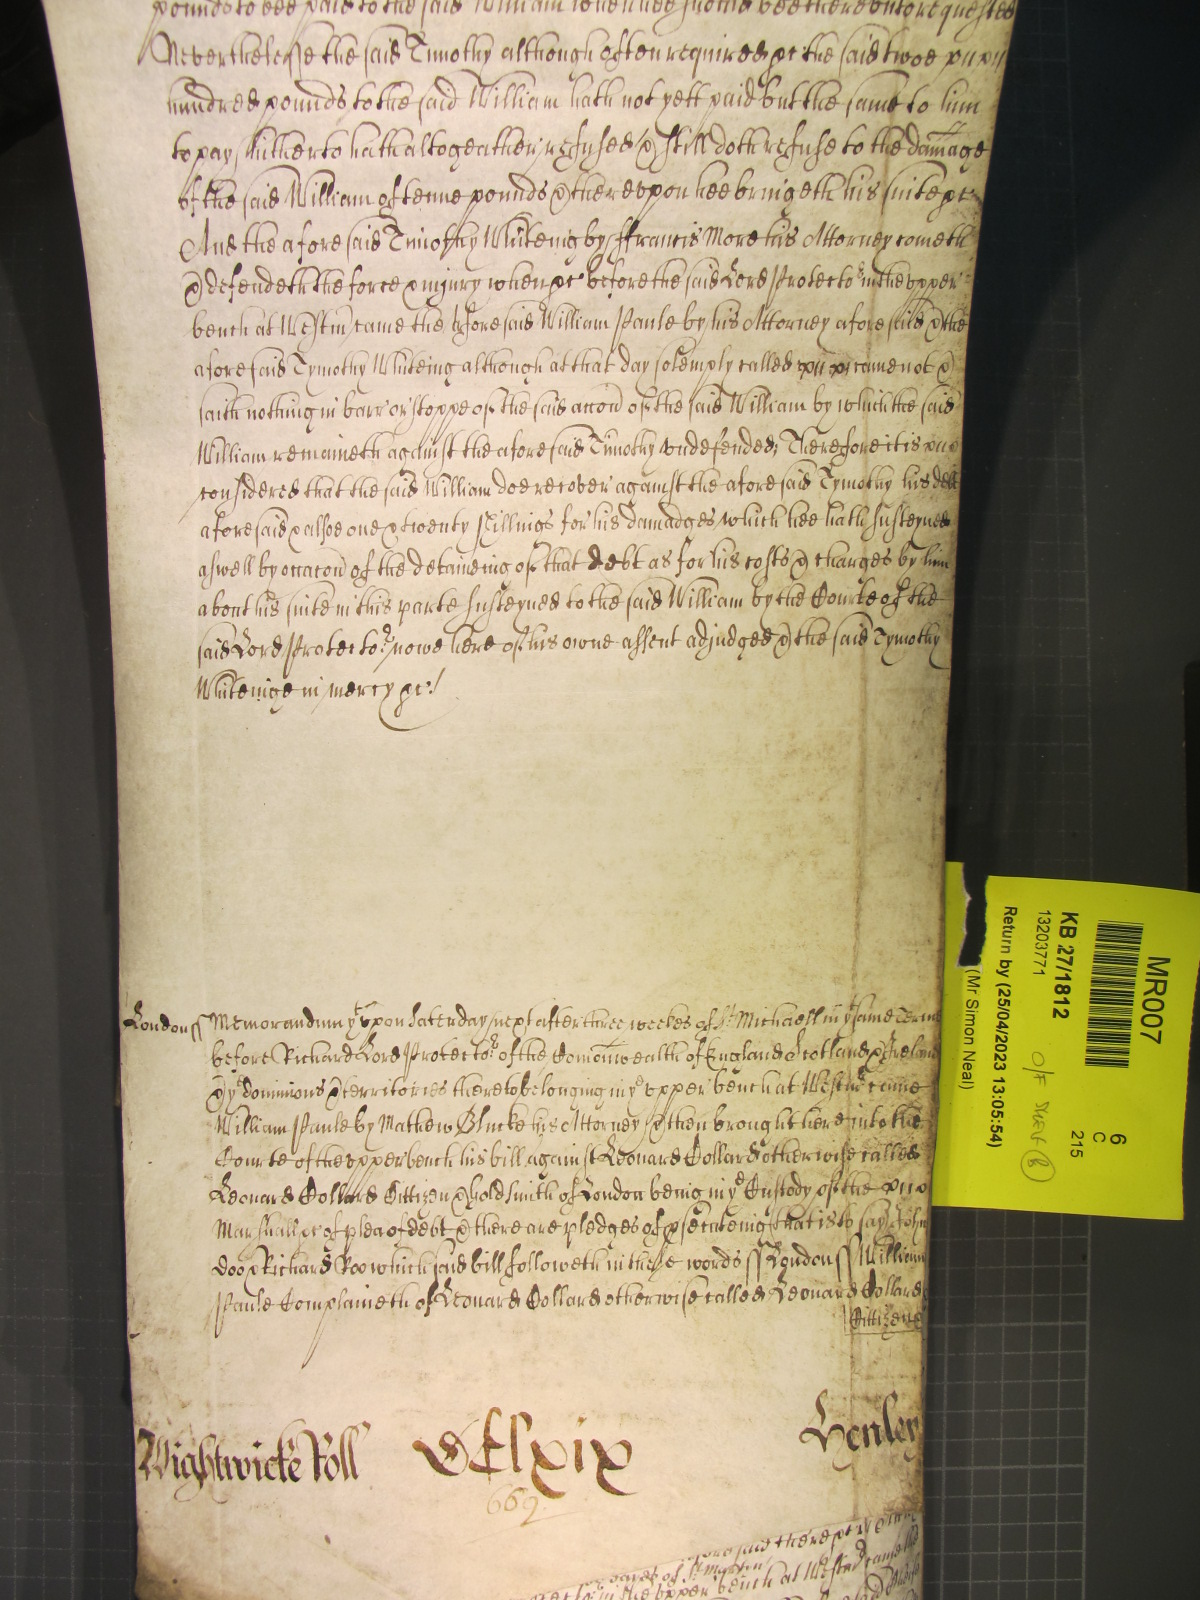 pounds to bee paid to the said William when hee should bee thereunto requested
Neverthelesse the said Timothy although often required &c the said twoe
hundred pounds to the said William hath not yett paid but the same to him
to pay hitherto hath altogeather refused & still doth refuse to the damage
of the said William of tenne pounds & thereupon hee bringeth his suite &c
And the aforesaid Timothy Whiteing by Ffrancis More his Attorney cometh
& defendeth the force & injury when &c before the said Lord Protector in the upper
bench at Westm came the aforesaid William Paule by his Attorney aforesaid & the
aforesaid Tymothy Whiteing although at that day solemply called came not &
saith nothing in barr or stoppe of the said accon of the said William by which the said
William remaineth against the aforesaid Timothy undefended, Therefore it is
considered that the said William doe recover against the aforesaid Tymothy his debt
aforesaid & alsoe one & twenty shillings for his damadges which hee hath susteyned
aswell by occacon of the detaineing of that debt as for his costs & charges by him
about his suite in this parte susteyned to the said William by the Courte of the
said Lord Protector nowe here of his owne assent adjudged & the said Tymothy
Whiteinge in mercy &c
London ss Memorandum yt upon Saterday next after three weekes of St Michaell in ye same Terme
before Richard Lord Protector of the Comonwealth of England Scotland & Ireland
& ye dominions & territories thereto belonging in ye upper bench at Westmr came
William Paule by Mathew Blucke his Attorney & then brought here into the
Courte of the upper bench his bill against Leonard Collard otherwise called
Leonard Collard Cittizen & Goldsmith of London being in ye Custody of the
Marshall &c of plea of debt & there are pledges of psecuteing that is to say John
Doo & Richard Roo which said bill followeth in these words ss London ss William
Paule Complaineth of Leonard Collard otherwise called Leonard Collard
Cittizen &
Wightwicke Roll DClxix Henley
669
aforesaid there
of St Martin
in the upper bench at Westmr came
MR007
6
C
215
KB 27/1812
13203771
O/F Shelf (B)
Return by (25/04/2023 13:05:54)
(Mr Simon Neal)